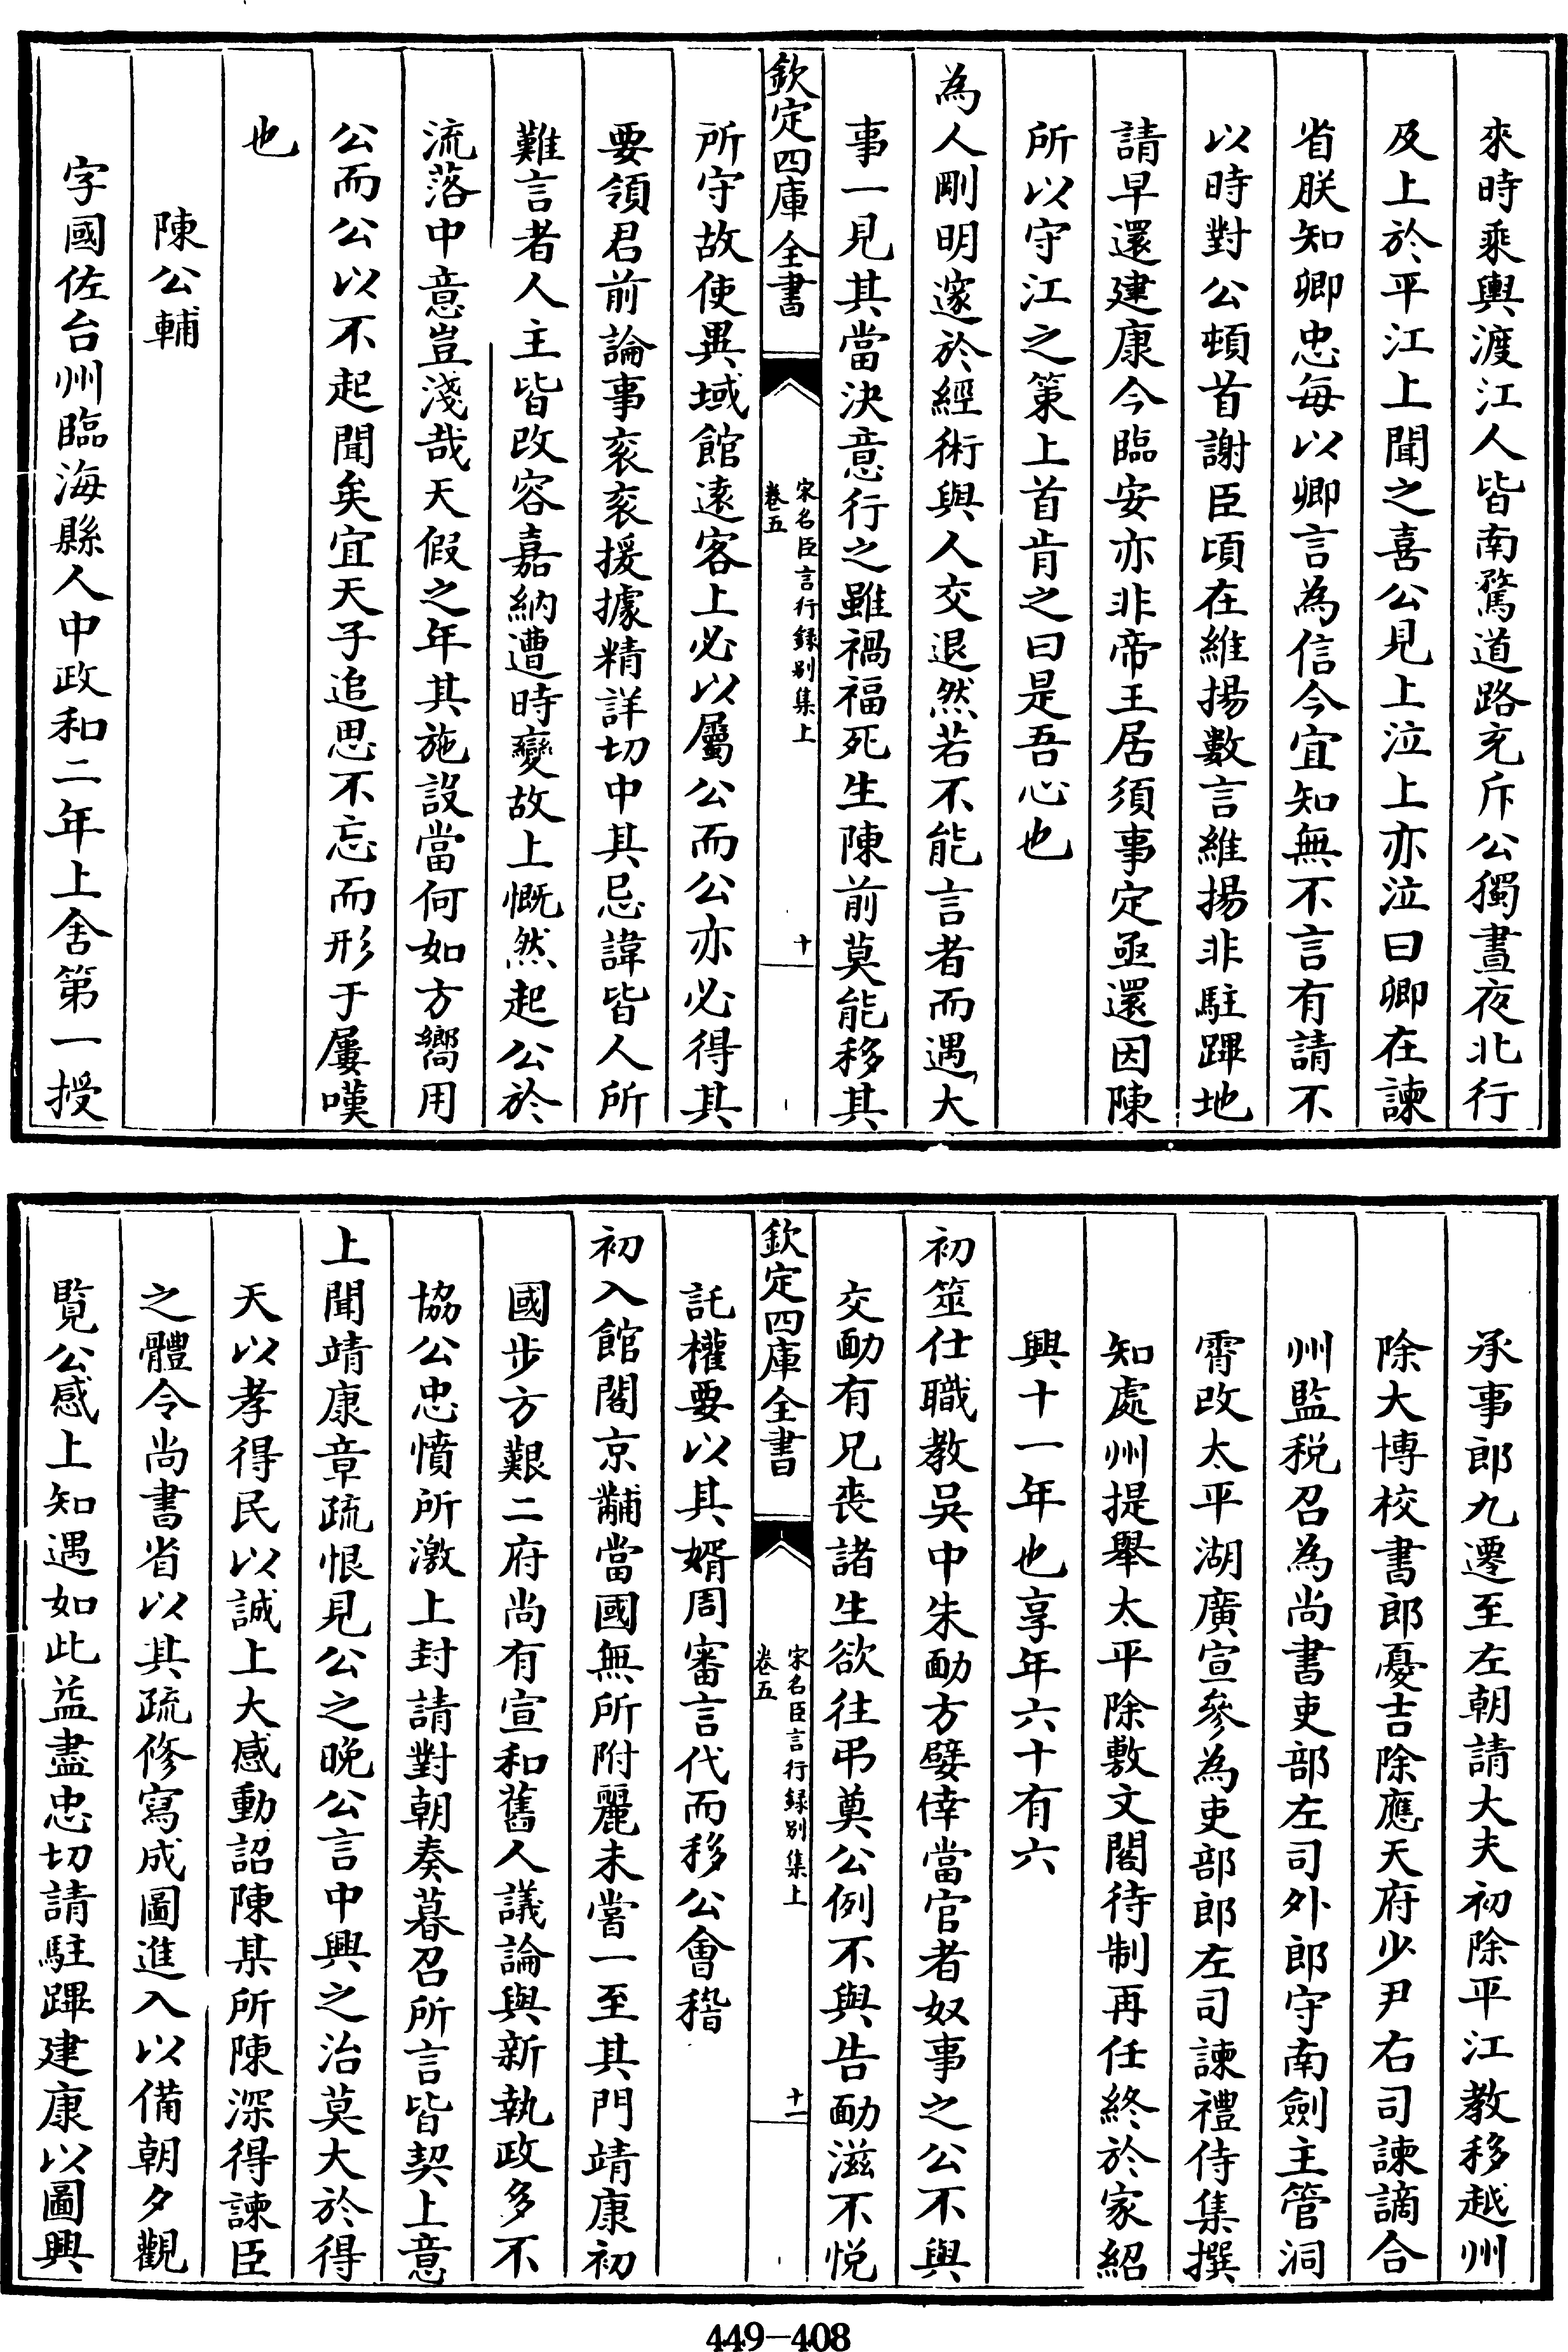 來時乘輿渡江人皆南騖道路充斥公獨晝夜北行
及上於平江上聞之喜公見上泣上亦泣曰卿在諫
省朕知卿忠每以卿言為信今宜知無不言有請不
以時對公頓首謝臣頃在維揚數言維揚非駐蹕地
請早還建康今臨安亦非帝王居須事定亟還因陳
所以守江之策上首肯之曰是吾心也
為人剛明邃於經術與人交退然若不能言者而遇大
事一見其當決意行之雖禍福死生陳前莫能移其
欽定四庫全書
宋名臣言行録別集上
卷五
十
所守故使異域館遠客上必以屬公而公亦必得其
要領君前論事衮衮援據精詳切中其忌諱皆人所
難言者人主皆改容嘉納遭時變故上慨然起公於
流落中意豈淺哉天假之年其施設當何如方嚮用
公而公以不起聞矣宜天子追思不忘而形于屢嘆
也
陳公輔
字國佐台州臨海縣人中政和二年上舍第一授
承事郎九遷至左朝請大夫初除平江教移越州
除大博校書郎憂吉除應天府少尹右司諫謫合
州監税召為尚書吏部左司外郎守南劍主管洞
霄改太平湖廣宣參為吏部郎左司諫禮侍集撰
知處州提舉太平除敷文閣待制再任終於家紹
興十一年也享年六十有六
初筮仕職教吳中朱勔方嬖倖當官者奴事之公不與
交勔有兄喪諸生欲往弔奠公例不與告勔滋不悅
欽定四庫全書
宋名臣言行録別集上
卷五
十一
託權要以其婿周審言代而移公會稽
初入館閣京黼當國無所附麗未嘗一至其門靖康初
國步方艱二府尚有宣和舊人議論與新執政多不
協公忠憤所激上封請對朝奏暮召所言皆契上意
上聞靖康章疏恨見公之晚公言中興之治莫大於得
天以孝得民以誠上大感動詔陳某所陳深得諫臣
之體令尚書省以其疏修寫成圖進入以備朝夕觀
覽公感上知遇如此益盡忠切請駐蹕建康以圖興
449-408